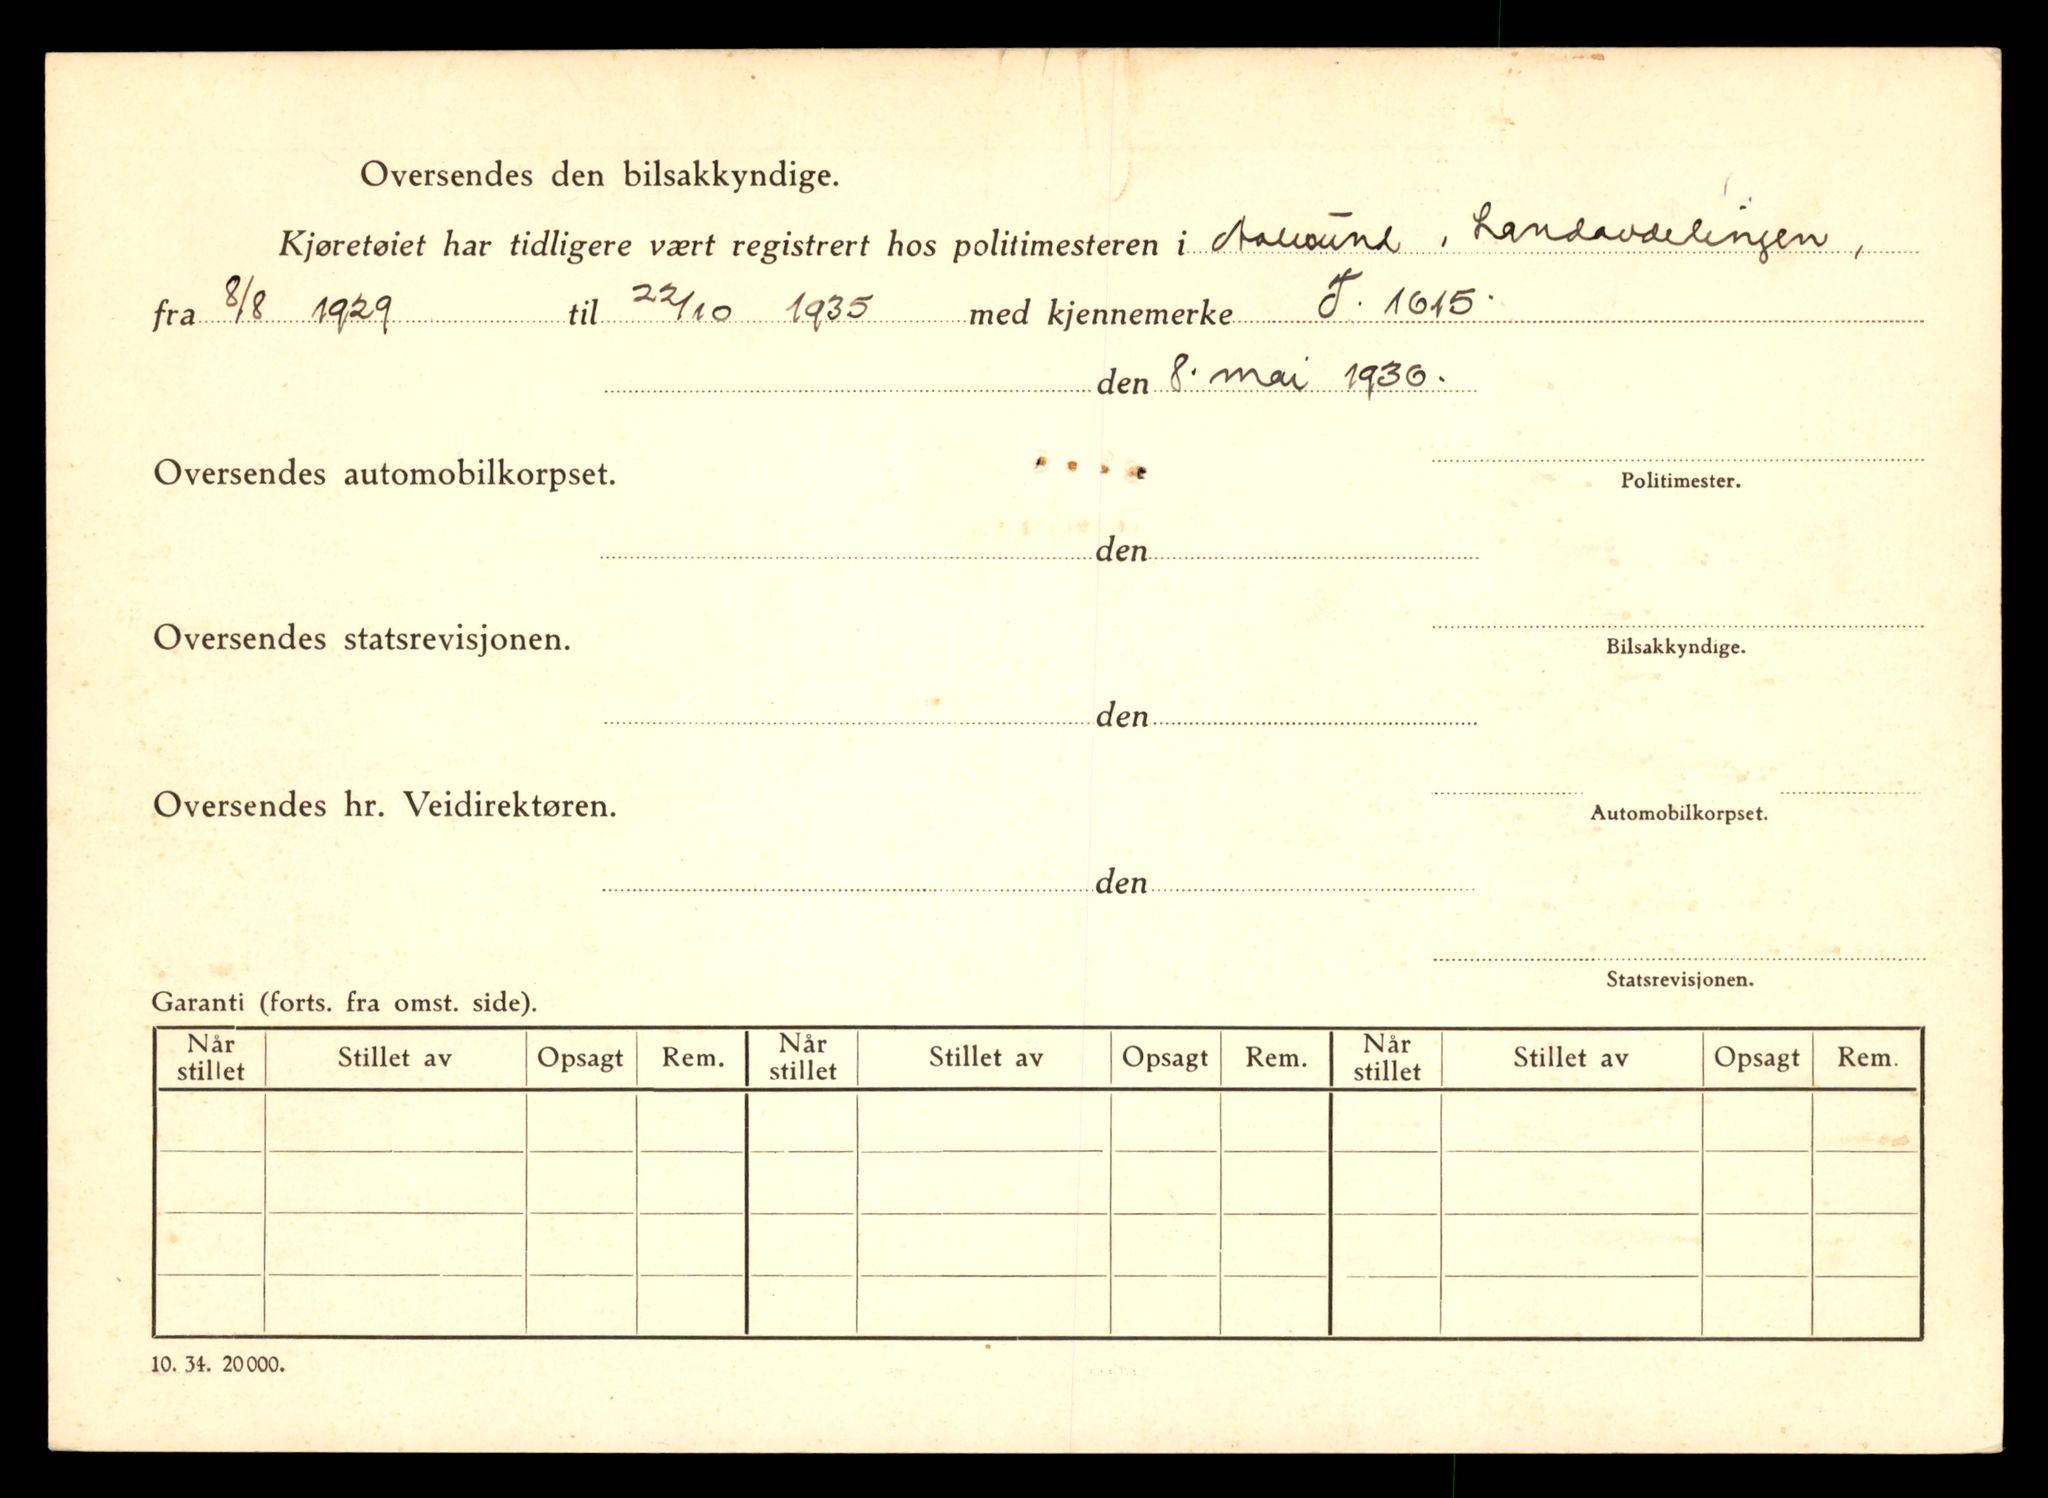 Oversendes den bilsakkyndige.
Kjøretøiet har tidligere vært registrert hos politimesteren i Aalesund, Landavdelingen,
fra 8/8 1929 til 22/10 1935 med kjennemerke T. 1615.
den 8. mai 1936.
Oversendes automobilkorpset.
Politimester.
den
Oversendes statsrevisjonen.
Bilsakkyndige.
den
Oversendes hr. Veidirektøren.
Automobilkorpset.
den
Statsrevisjonen.
Garanti (forts. fra omst. side).
Når stillet Stillet av Opsagt Rem. Når stillet Stillet av Opsagt Rem. Når stillet Stillet av Opsagt Rem.
10. 34. 20000.